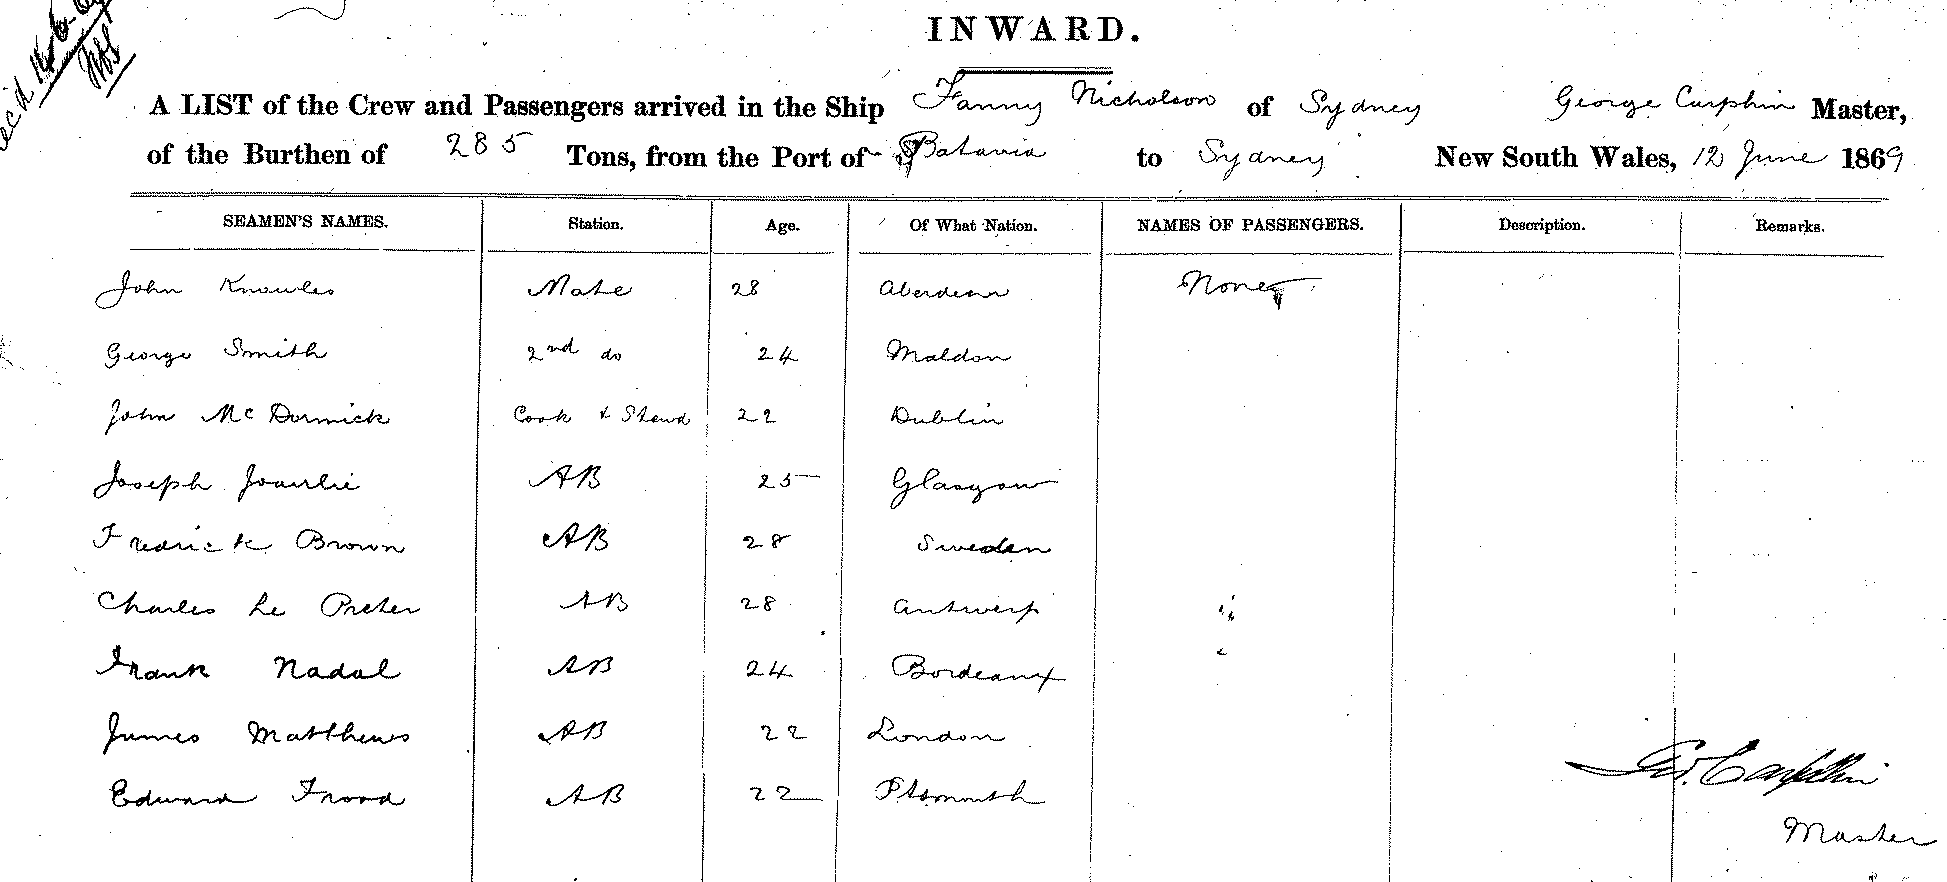 INWARD.
A LIST of the Crew and Passengers arrived in the Ship Fanny Nicholson of Sydney George Carphin Master,
of the Burthen of 285 Tons, from the Port of Batavia to Sydney New South Wales, 12 June 1869
SEAMEN'S NAMES. Station. Age. Of What Nation. NAMES OF PASSENGERS. Description. Remarks.
John Knowles Mate 28 Aberdeen None
George Smith 2nd do 24 Maldon
John McDormick Cook + Stewd 22 Dublin
Joseph AB 25 Glasgow
Fredrick Brown AB 28 Sweden
Charles Le Preter AB 28 Antwerp
Frank Nadal AB 24 Bordeaux
James Matthews AB 22 London
Edward Frood AB 22
Geo. Carphin
Master